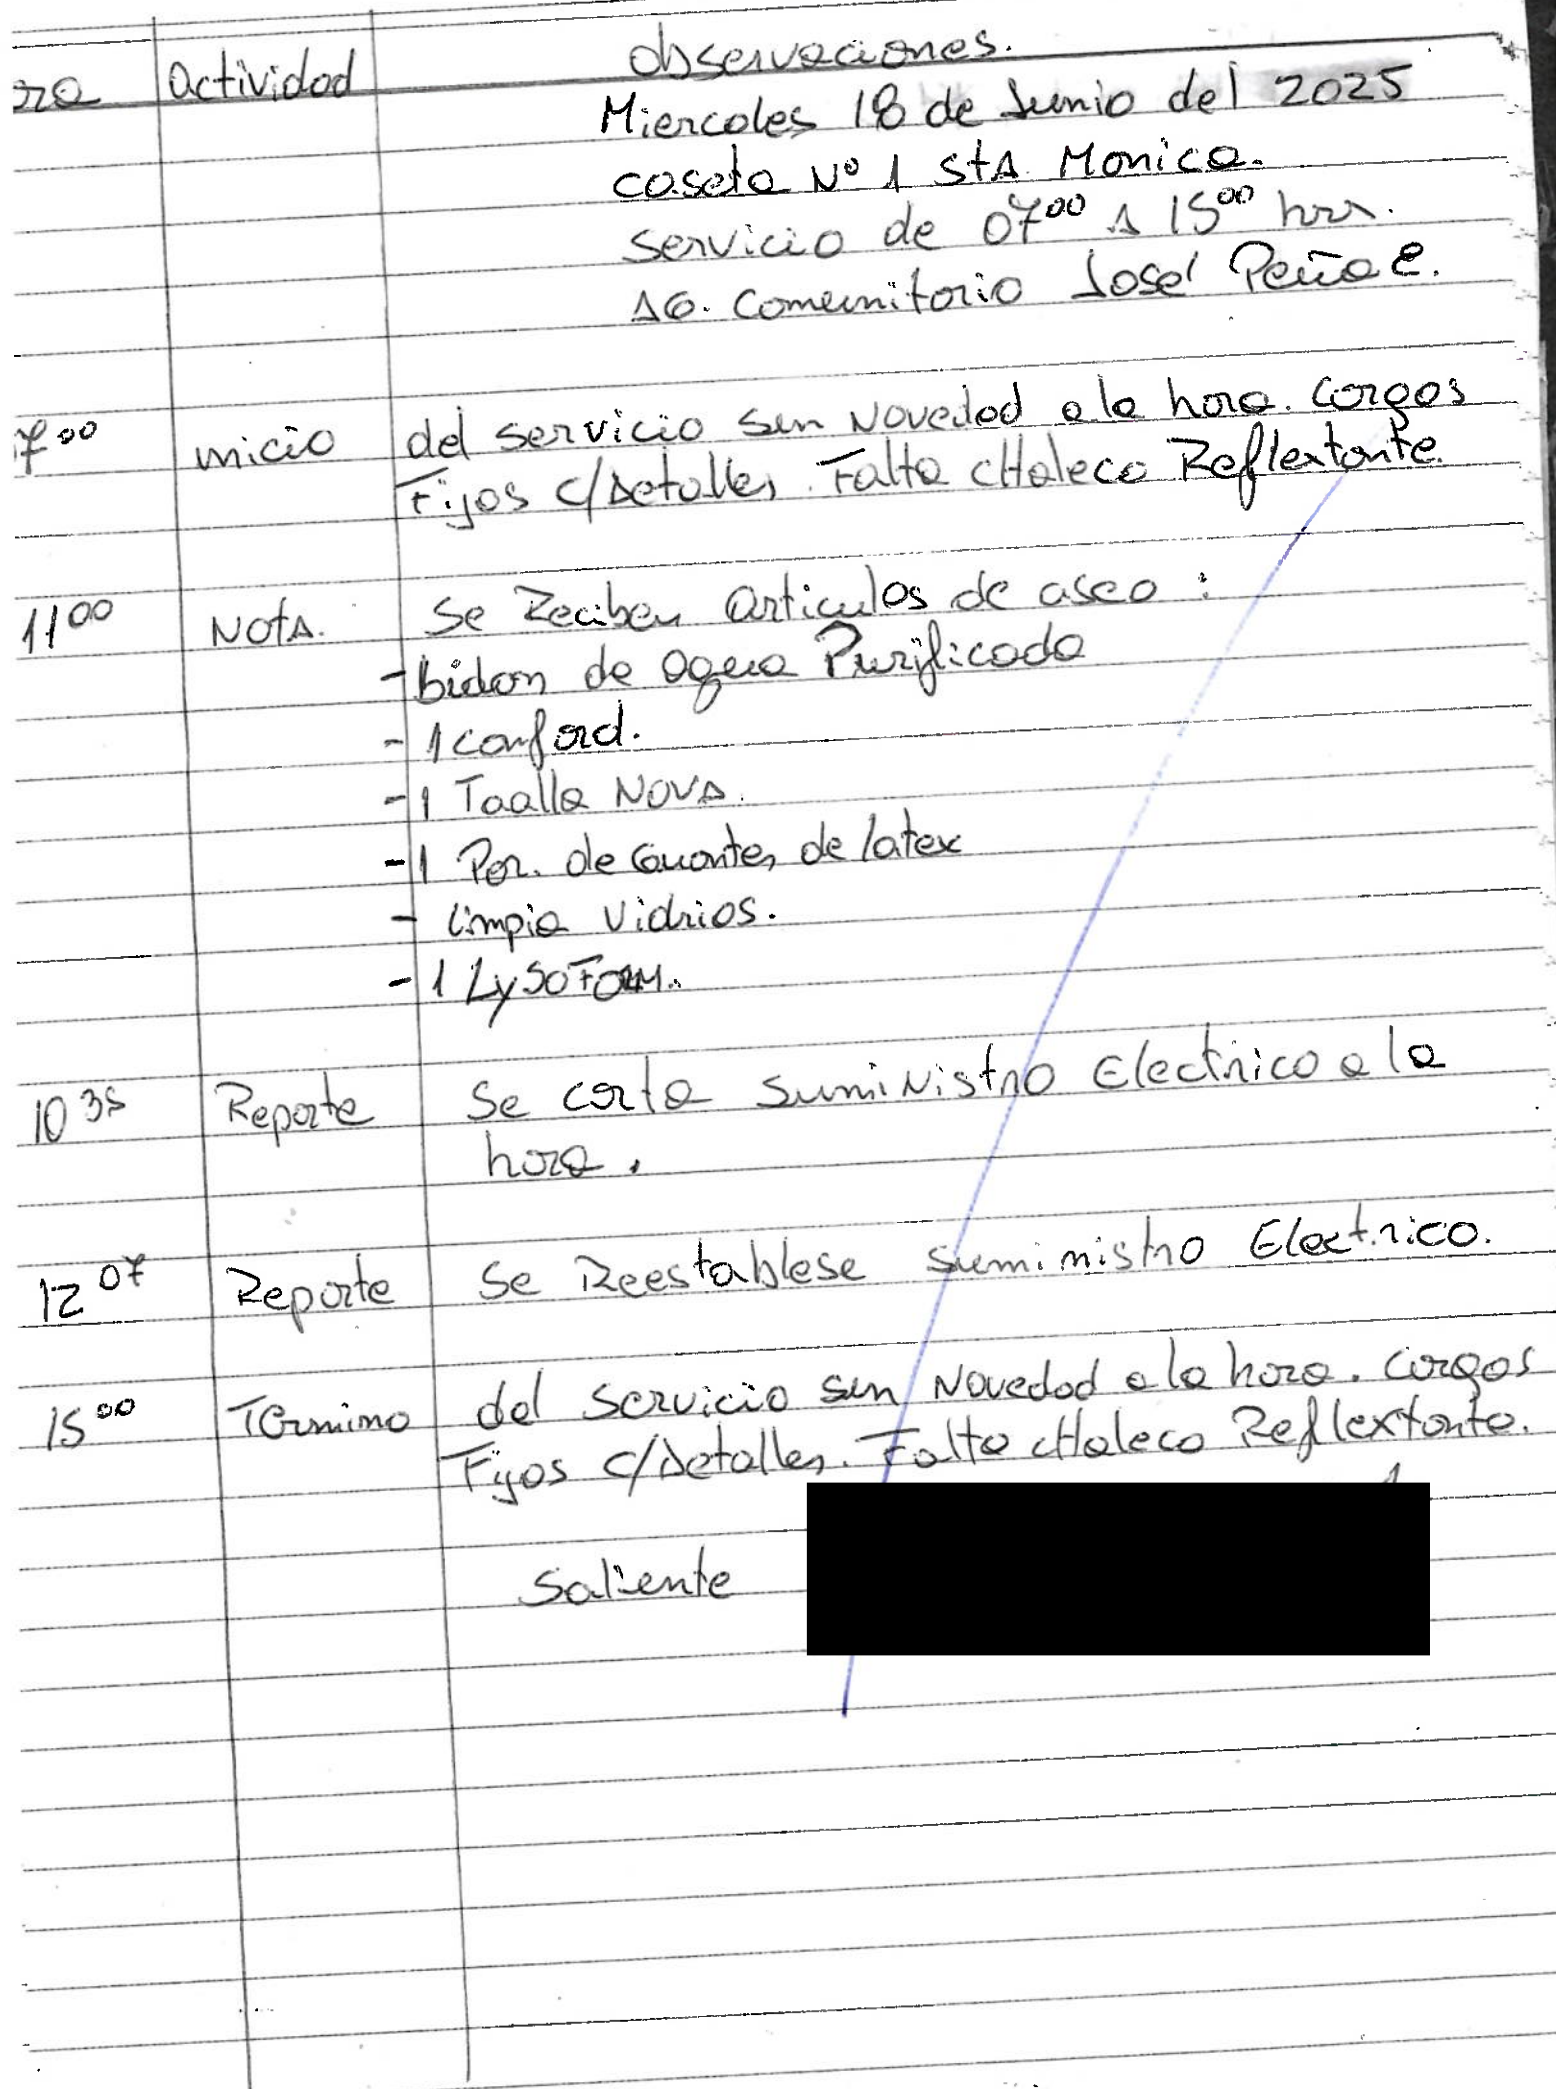 observaciones.
ora Actividad
Miercoles 18 de Junio del 2025
caseta Nº 1 StA Monica.
Servicio de 0700 A 1500 hrs.
AG. Comunitario José Peña C.
700 inicio del servicio sin Novedad a la hora. Cargos
Fijos c/Detalles. Falta cHaleco Reflextante.
1100 NotA. Se Reciben articulos de aseo :
- bidon de agua Purificada
- 1 conford.
- 1 Toalla NOVA.
- 1 Par. de Guantes de latex
- limpia vidrios.
- 1 LysoForm.
1035 Reporte Se corta Suministro Electrico a la
hora.
1207 Reporte Se Reestablese Suministro Electrico.
1500 Termino del Servicio sin Novedad a la hora. Cargos
Fijos c/Detalles. Falta cHaleco Reflextante.
Saliente